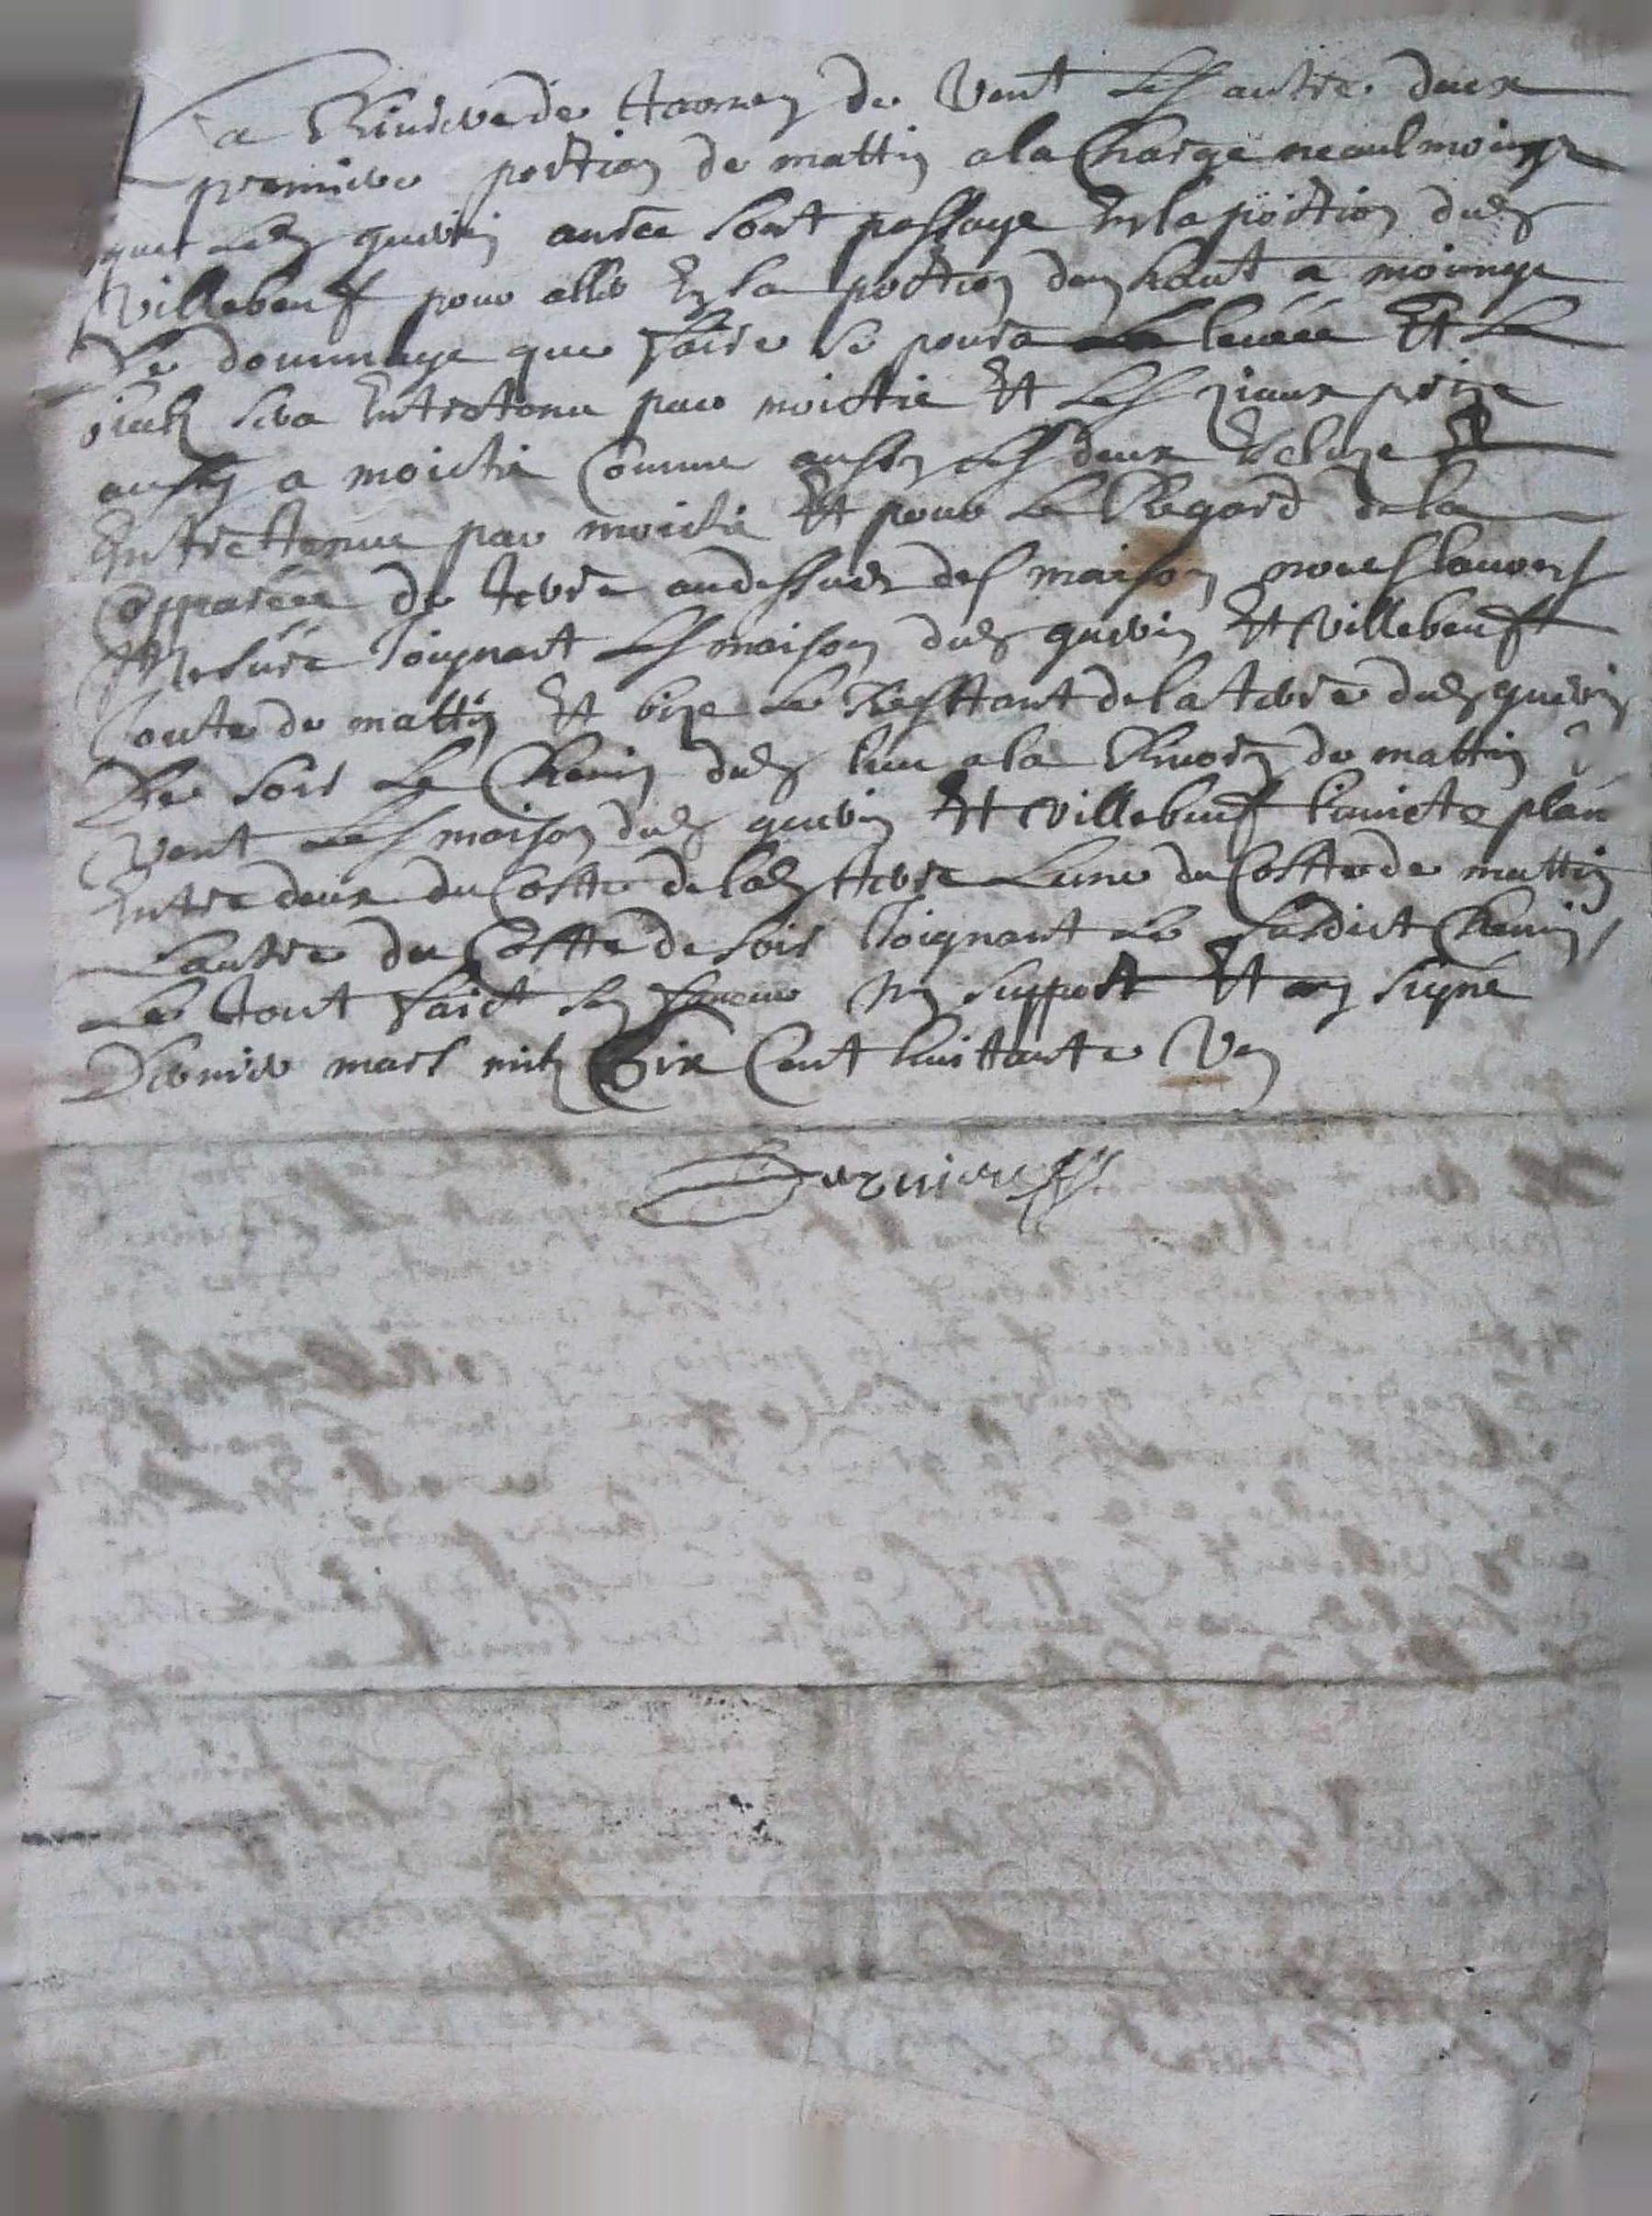 La Riviere de tarney de vent Les autre deux
premiere portion de mattin a la Charge neaulmoings
que Led quevin aurra sont passage En la portion dud
Villebeuf pour aller En la portion den haut a moingre
De dommage que faire se poura La levéé Et Le
biealz sera Entretenu par moictie Et Les prize
aussy a moictié Comme aussy Les deux Ecluze Et
Entrettenue par moictié Et pour Le Regard de la
de terre audessus des maison nous lauons
Mesuré Joignant Les maison dud quevin Et Villebeuf
Jouste de mattin Et bize Le Resttant de la terre dud quevin
De soir Le Chemin dud lieu a la de mattin
Vent Les maison dud quevin Et Villebeuf plan
Entre deux du Coste de lad terre Lune du Costte de mattin
Lautre du Costte de soir Joignant Le susdict Chemin
Le tout faict sen faveur ny support Et ay signé
Dernier mars mil Six Cent huittante Un
Derniere